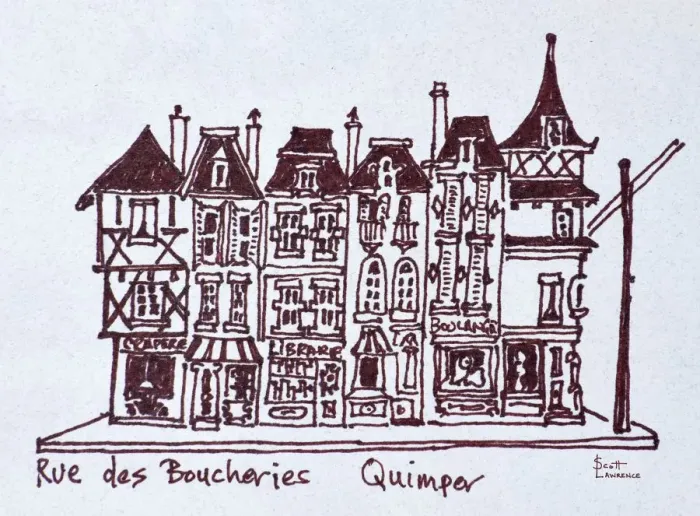 CRAPERE
LIBRARE
BOULANGE
Rue des Boucheries Quimper
Scott
Lawrence